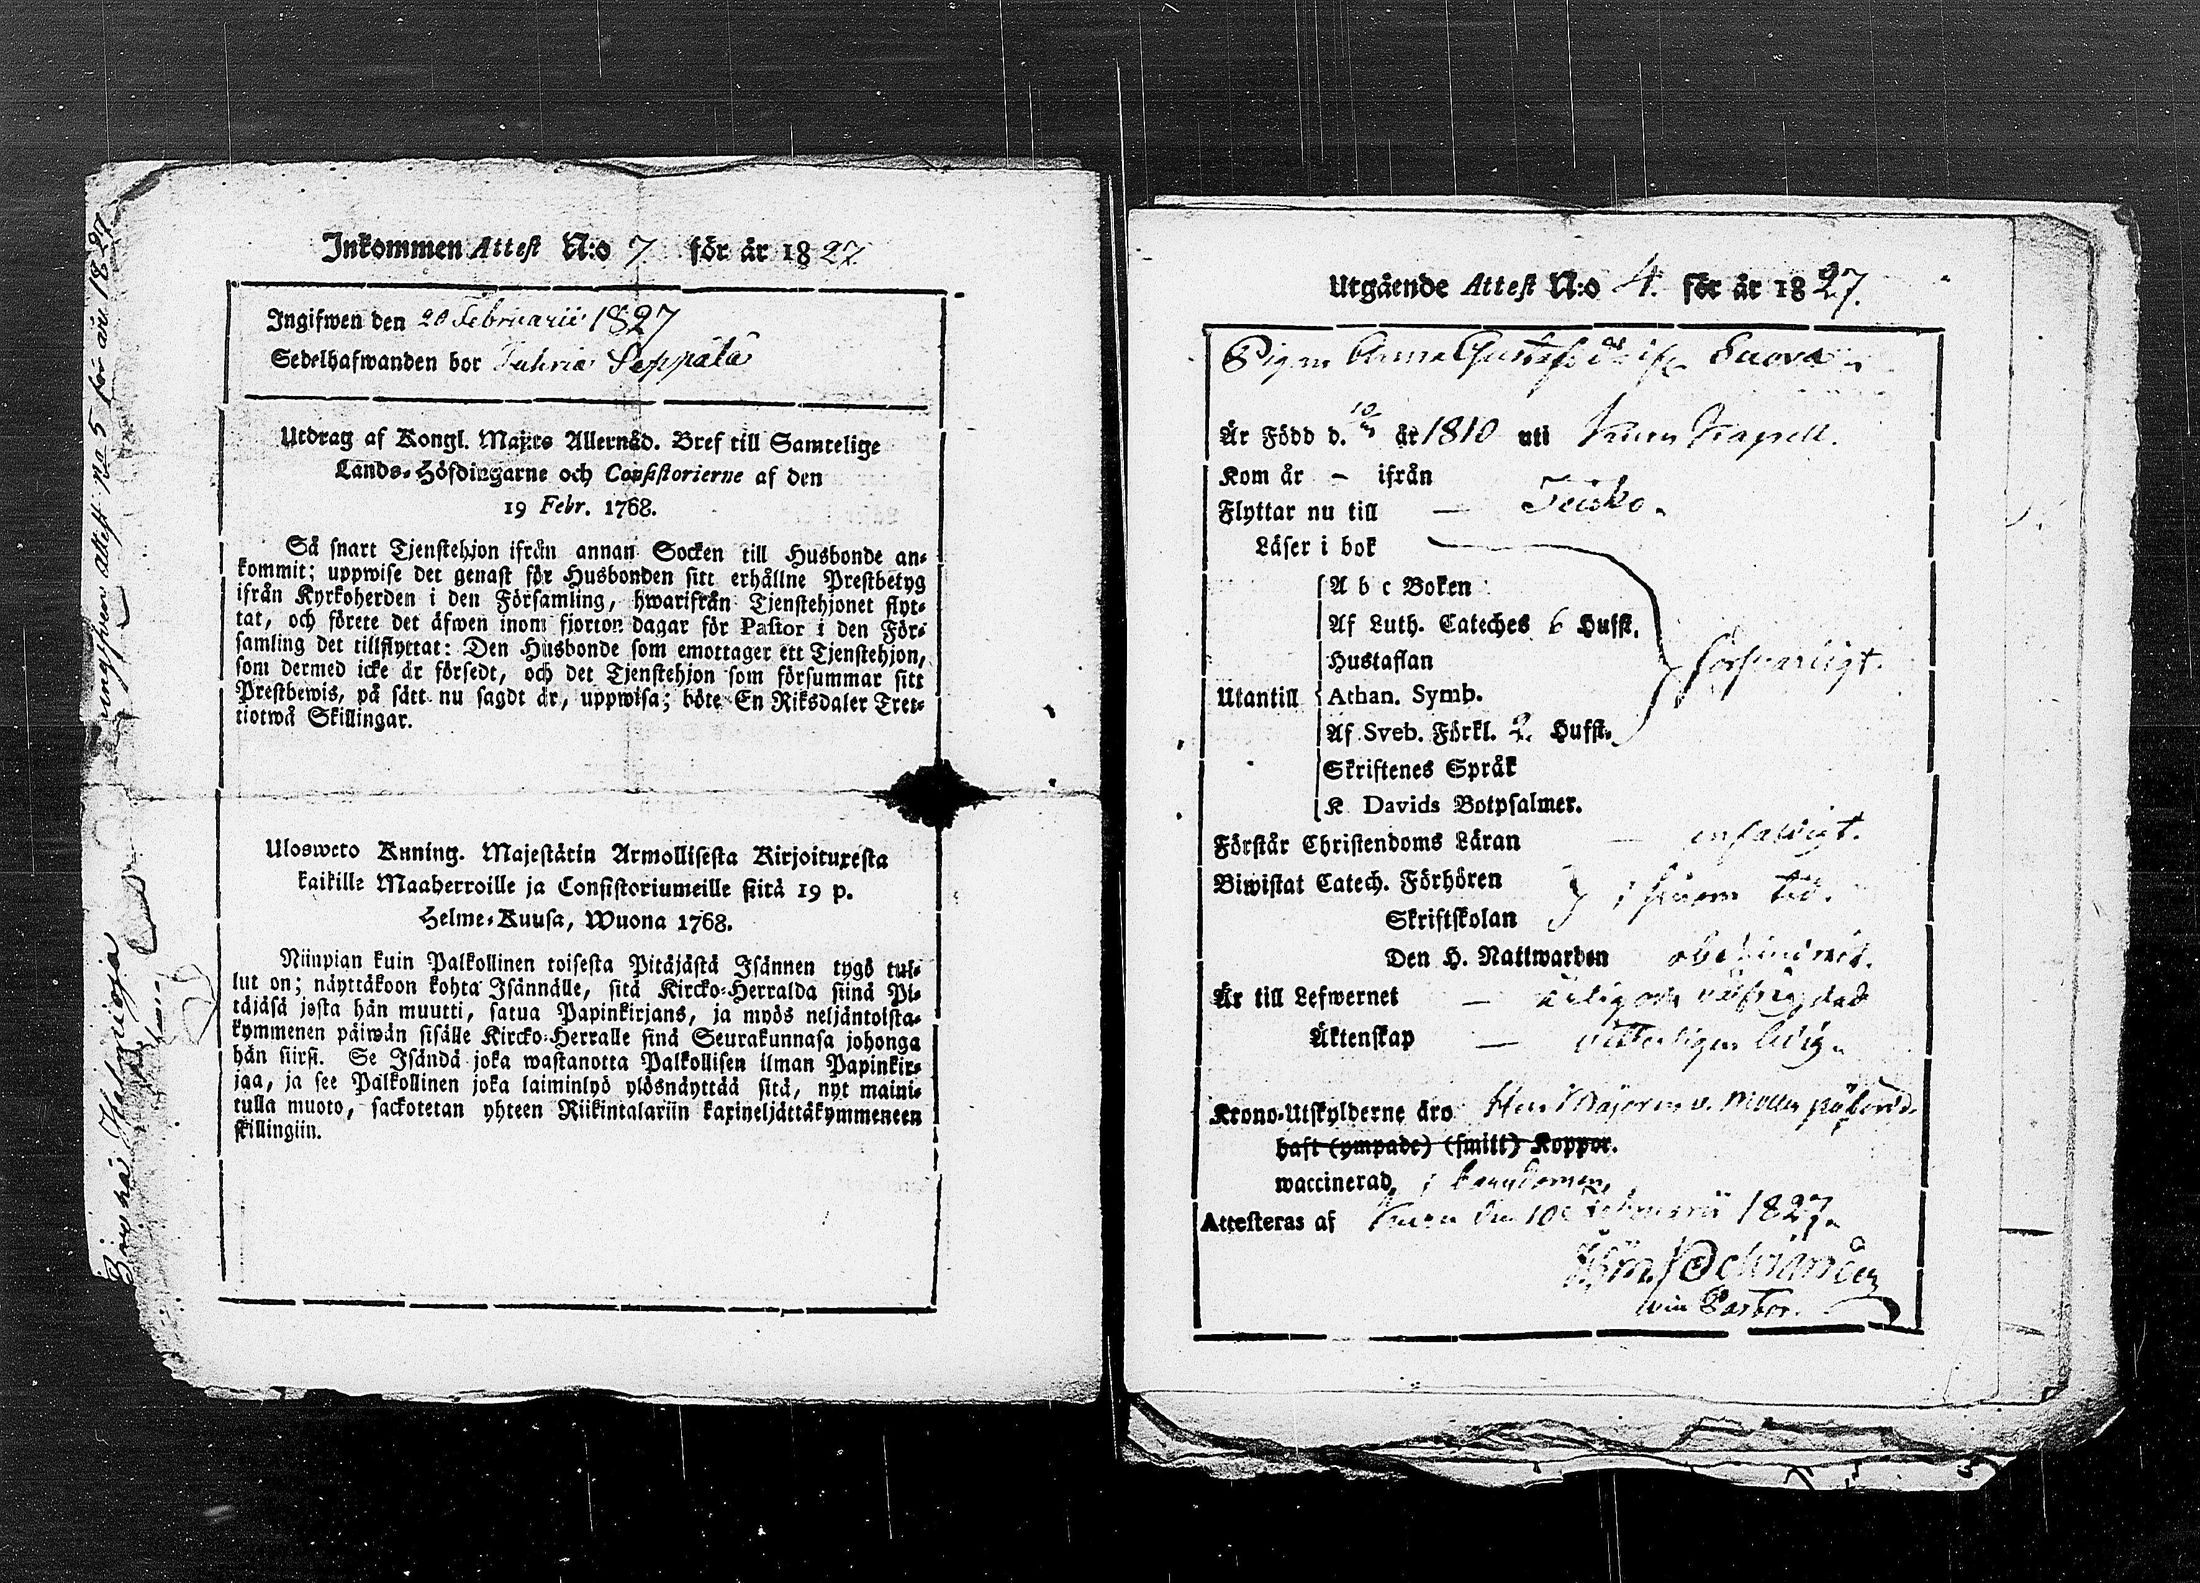 Ingifven attest No 5 för år 1827
Bor på
Inkommen Attest N:o 7 för år 1827.
Ingifwen den 20 Februarii 1827
Sedelhafwanden bor Seppälä
Utdrag af Kongl. Maj:ts Allernåd. Bref till Samtelige
Lands-Höfdingarne och Consistorierne af den
19 Febr. 1768.
Så snart Tjenstehjon ifrån annan Socken till Husbonde an-
kommit; uppwise det genast för Husbonden sitt erhållne Prestbetyg
ifrån Kyrkoherden i den Församling, hwarifrån Tjenstehjonet flyt-
tat, och förete det äfwen inom fjorton dagar för Pastor i den För-
samling det tillflyttat: Den Husbonde som emottager ett Tjenstehjon,
som dermed icke är försedt, och det Tjenstehjon som försummar sitt
Prestbewis, på sätt nu sagdt är, uppwisa; böte En Riksdaler Tret-
tiotwå Skillingar.
Ulosweto Kuning. Majestätin Armollisesta Kirjoituxesta
kaikille Maaherroille ja Consistoriumeille siitä 19 p.
Helme-Kuusa, Wuona 1768.
Niinpian kuin Palkollinen toisesta Pitäjästä Isännen tygö tul-
lut on; näyttäkoon kohta Isännälle, sitä Kircko-Herralda siinä Pi-
täjäsä josta hän muutti, satua Papinkirjans, ja myös neljäntoista-
kymmenen päiwän sisälle Kircko-Herralle siinä Seurakunnasa johonga
hän siirsi. Se Isändä joka wastanotta Palkollisen ilman Papinkir-
jaa, ja see Palkollinen joka laiminlyö ylösnäyttää sitä, nyt maini-
tulla muoto, sackotetan yhteen Riikintalariin kaxineljättäkymmeneen
skillingiin.
Utgående Attest N:o 4. för år 1827.
Pigan Anna Gustafsdr ifr. Suova
Är Född d. 10 år 1810 uti Kuru Kapell.
Kom år – ifrån
Flyttar nu till — Teisko.
Läser i bok
A b c Boken
Af Luth. Cateches 6 Hufst.
Hustaflan
Utantill Athan. Symb. försvarligt.
Af Sveb. Förkl. 2. Hufst.
Skriftenes Språk
K Davids Botpsalmer.
Förstår Christendoms Läran — enfaldigt.
Biwistat Catech. Förhören
Skriftskolan i sinom tid.
Den H. Nattwarden obehindrat.
Är till Lefwernet — ärlig och välfrejdad
Äktenskap — vitterligen ledig.
Krono-Utskylderne äro Herr Majoren v. Möller påförd.
haft (ympade) (smitt) Koppor.
waccinerad i barndomen.
Attesteras af Kuru den 10 Februarii 1827.
vice Pastor.